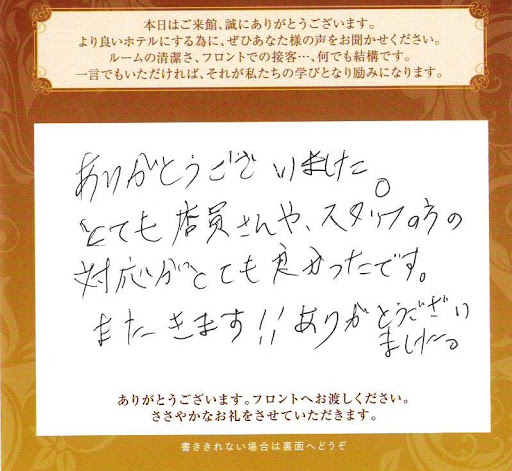 本日はご来館、誠にありがとうございます。
より良いホテルにする為に、ぜひあなた様の声をお聞かせください。
ルームの清潔さ、フロントでの接客…、何でも結構です。
一言でもいただければ、それが私たちの学びとなり励みになります。
ありがとうございました。
とても店員さんや、スタッフの方の
対応がとても良かったです。
またきます!!ありがとうござい
ました。
ありがとうございます。フロントへお渡しください。
ささやかなお礼をさせていただきます。
書ききれない場合は裏面へどうぞ